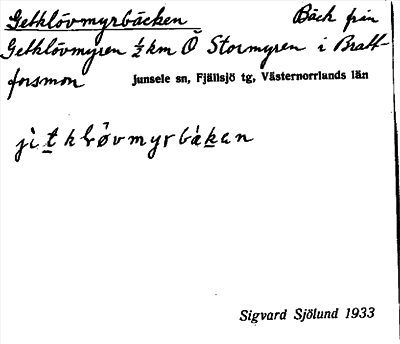 Getklövmyrbäcken Bäck från
Getklövmyren ½ km Ö Stormyren i Bratt-
forsmon Junsele sn, Fjällsjö tg, Västernorrlands län
Sigvard Sjölund 1933